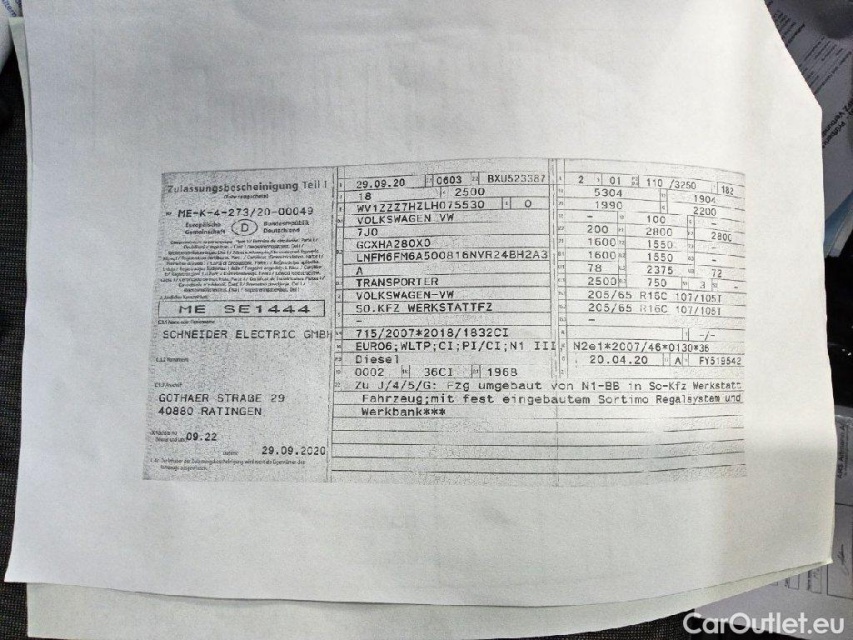 Zulassungsbescheinigung Teil I
ME-K-4-273/20-00049
Europäische Gemeinschaft D Bundesrepublik Deutschland
ME SE1444
SCHNEIDER ELECTRIC GMBH
GOTHAER STRAßE 29
40880 RATINGEN
09.22
29.09.2020
29.09.20 0603 BXU523387
18 2500
WV1ZZZ7HZLH075530 0
VOLKSWAGEN VW
7J0
GCXHA280X0
LNFM6FM6A500816NVR24BH2A3
A
TRANSPORTER
VOLKSWAGEN-VW
SO.KFZ WERKSTATTFZ
-
715/2007*2018/1832CI
EURO6;WLTP;CI;PI/CI;N1 III
Diesel
0002 36CI 1968
2 01 110 /3250 182
5304 1904
1990 2200
- 100 -
200 2800 2800
1600 1550 -
1600 1550 -
78 2375 72
2500 750 3 -
205/65 R16C 107/105T
205/65 R16C 107/105T
-
-/-
N2e1*2007/46*0130*36
20.04.20 A FY519542
Zu J/4/5/G: Fzg umgebaut von N1-BB in So-Kfz Werkstatt
Fahrzeug;mit fest eingebautem Sortimo Regalsystem und
Werkbank***
CarOutlet.eu